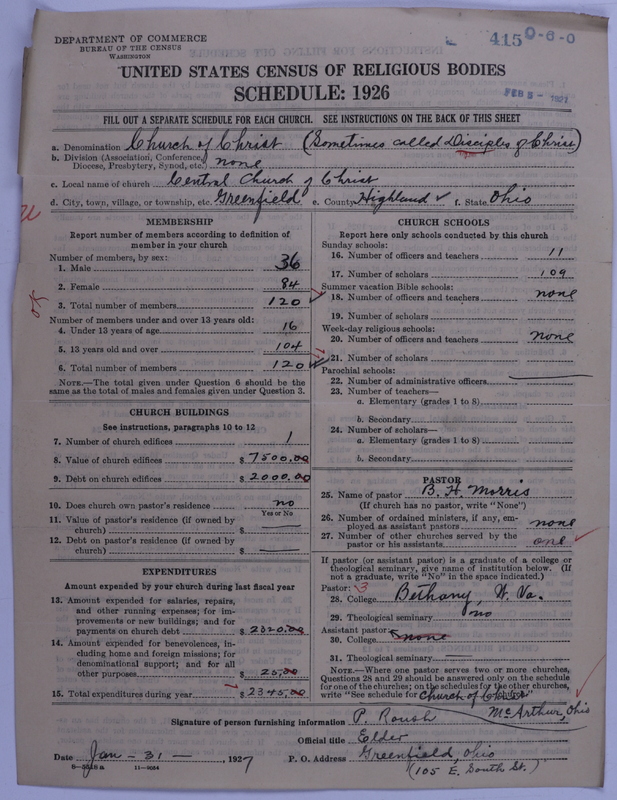 DEPARTMENT OF COMMERCE
BUREAU OF THE CENSUS
WASHINGTON
415 0-6-0
UNITED STATES CENSUS OF RELIGIOUS BODIES
SCHEDULE: 1926
FEB 5 - 1927
FILL OUT A SEPARATE SCHEDULE FOR EACH CHURCH. SEE INSTRUCTIONS ON THE BACK OF THIS SHEET
a. Denomination Church of Christ (Sometimes called Disciples of Christ)
b. Division (Association, Conference, Diocese, Presbytery, Synod, etc.) none
c. Local name of church Central Church of Christ
d. City, town, village, or township, etc. Greenfield e. County Highland f. State Ohio
MEMBERSHIP
Report number of members according to definition of
member in your church
Number of members, by sex:
1. Male 36
2. Female 84
3. Total number of members 120
Number of members under and over 13 years old:
4. Under 13 years of age 16
5. 13 years old and over 104
6. Total number of members 120
NOTE.—The total given under Question 6 should be the
same as the total of males and females given under Question 3.
CHURCH BUILDINGS
See instructions, paragraphs 10 to 12
7. Number of church edifices 1
8. Value of church edifices $ 7500.00
9. Debt on church edifices $ 2000.00
10. Does church own pastor's residence no
Yes or No
11. Value of pastor's residence (if owned by
church) $
12. Debt on pastor's residence (if owned by
church) $
EXPENDITURES
Amount expended by your church during last fiscal year
13. Amount expended for salaries, repairs,
and other running expenses; for im-
provements or new buildings; and for
payments on church debt $ 2320.00
14. Amount expended for benevolences, in-
cluding home and foreign missions; for
denominational support; and for all
other purposes 25.00
15. Total expenditures during year $ 2345.00
CHURCH SCHOOLS
Report here only schools conducted by this church
Sunday schools:
16. Number of officers and teachers 11
17. Number of scholars 109
Summer vacation Bible schools:
18. Number of officers and teachers none
19. Number of scholars
Week-day religious schools:
20. Number of officers and teachers none
21. Number of scholars
Parochial schools:
22. Number of administrative officers
23. Number of teachers—
a. Elementary (grades 1 to 8)
b. Secondary
24. Number of scholars—
a. Elementary (grades 1 to 8)
b. Secondary
PASTOR
25. Name of pastor B. H. Morris
(If church has no pastor, write "None")
26. Number of ordained ministers, if any, em-
ployed as assistant pastors none
27. Number of other churches served by the
pastor or his assistants one
If pastor (or assistant pastor) is a graduate of a college or
theological seminary, give name of institution below. (If
not a graduate, write "No" in the space indicated.)
Pastor: 3
28. College Bethany, W. Va.
29. Theological seminary no
Assistant pastor:
30. College none
31. Theological seminary
NOTE.—Where one pastor serves two or more churches,
Questions 28 and 29 should be answered only on the schedule
for one of the churches; on the schedules for the other churches,
write "See schedule for Church of Christ
McArthur, Ohio
Signature of person furnishing information P. Roush
Official title Elder
Date Jan - 31 -, 1927 P. O. Address Greenfield, Ohio
(105 E. South St.)
11-9084